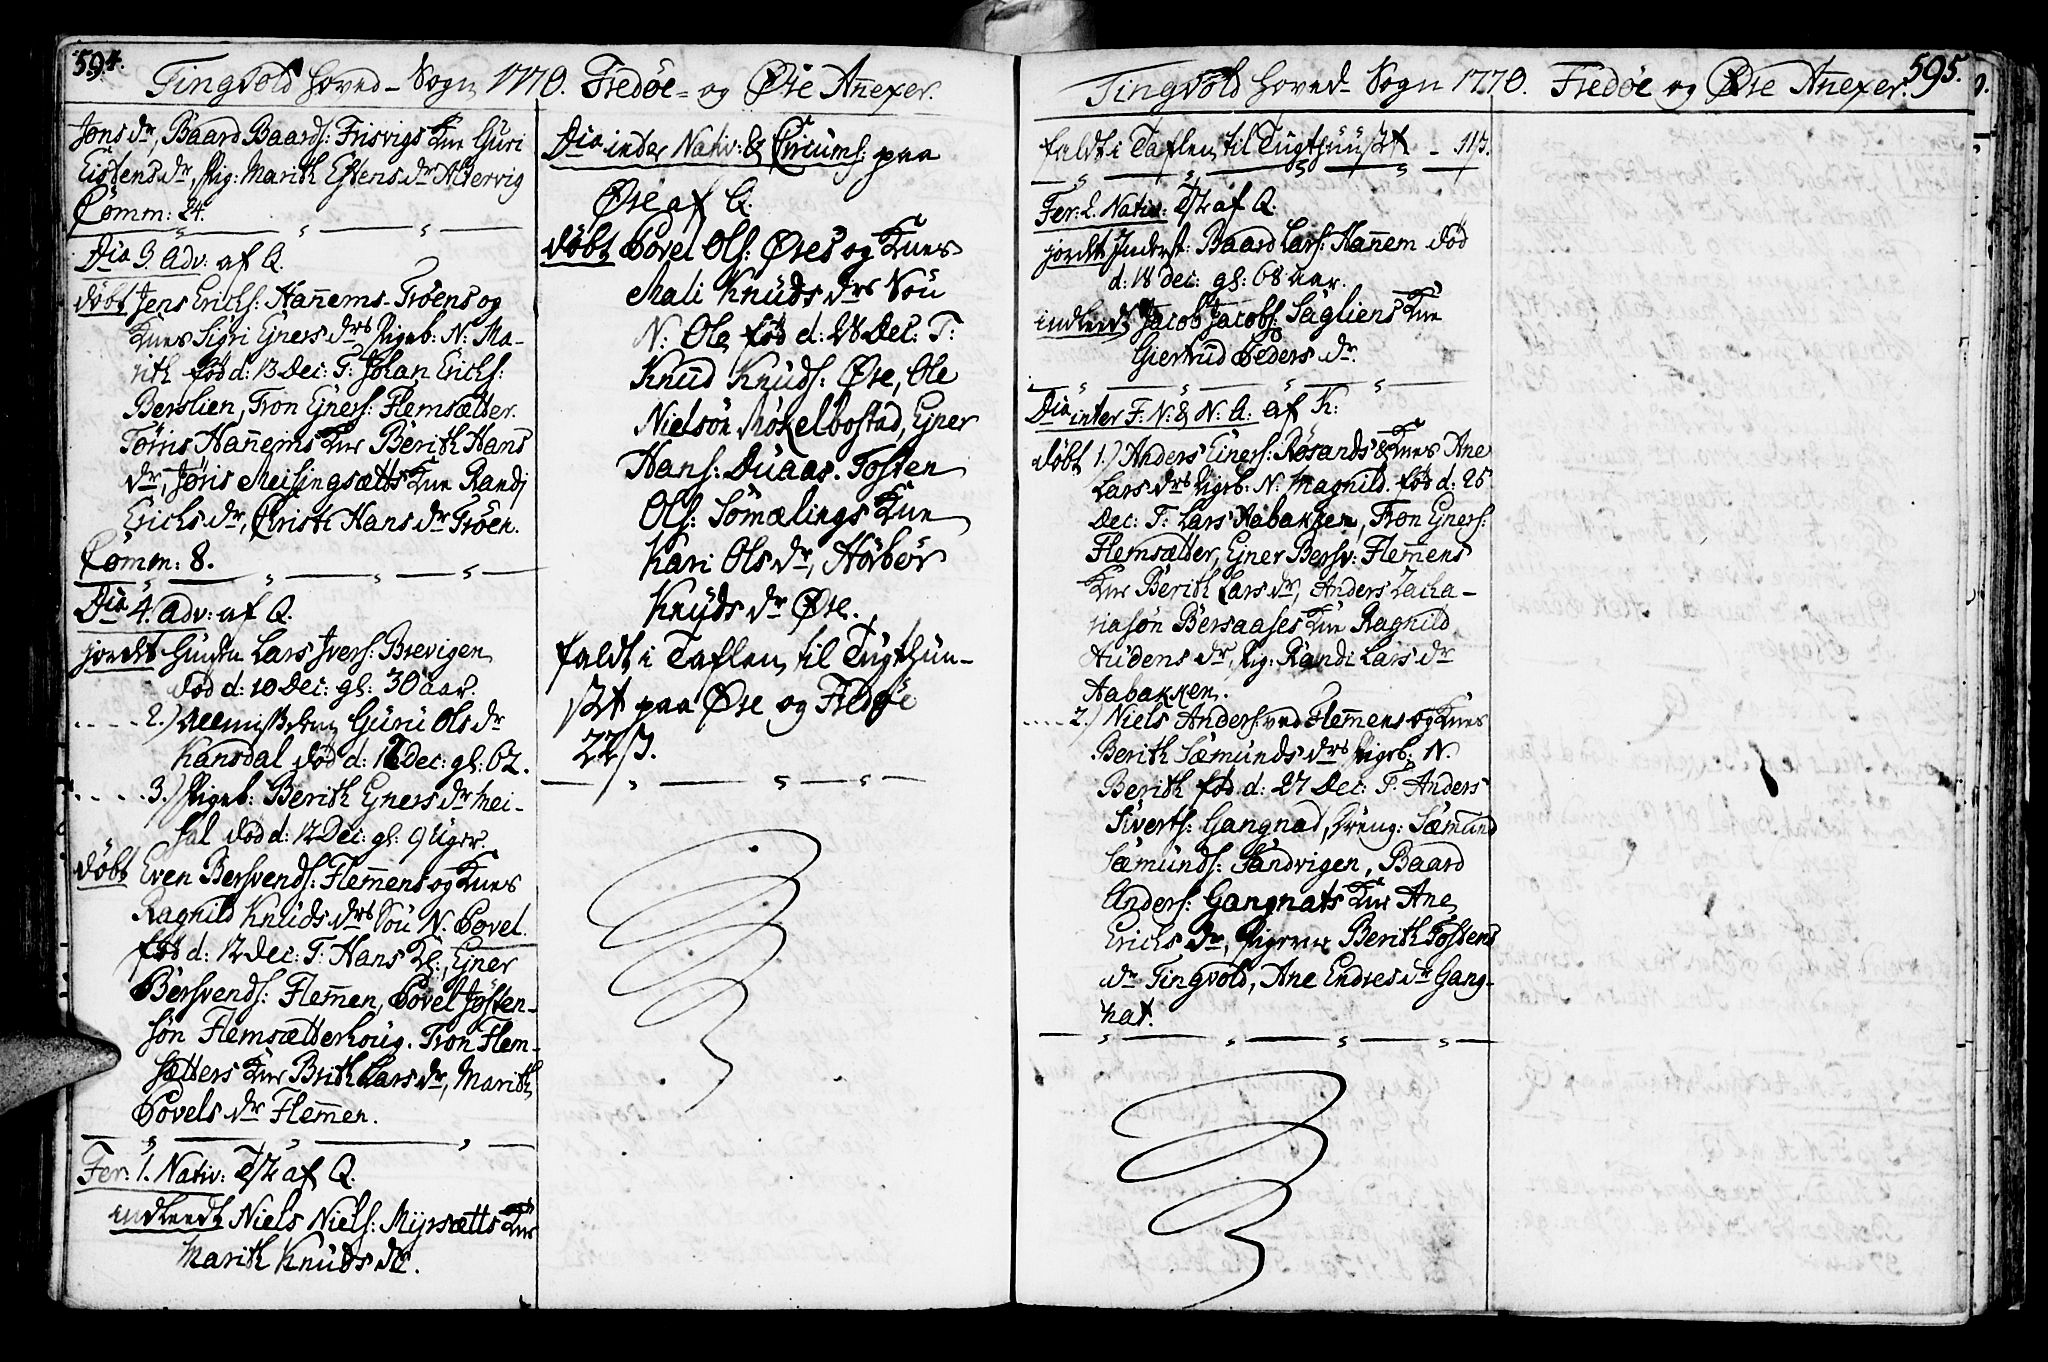 594.
Tingvold Hoved-Sogn 1770. Fredøe- og Øre Anexer.
Jons dr, Baard Baards: Frisvigs Kue Guri
Eistens dr, Pig: Marith Estens dr Altervig
Comm: 24.
Dia 3. Adv: af Q.
døbt Jens Erichs: Hanems-Trøens og
Kues Sigri Ejners drs Pigeb: N: Ma-
rith fød d: 13 Dec: T: Johan Erichs:
Berslien, Tron Ejners: Flemsætter.
Tøris Hanems Kue Berith Hans
dr, Jøris Meisingsætts Kue Randi
Erichs dr, Christi Hans dr Trøen.
Comm: 8.
Dia 4. Adv: af Q.
jordet Lars Ivers: Brevigen
død d: 10 Dec: gl: 30 aar.
2.) Guru Ols dr
Kansdal død d: 12 Dec: gl: 62.
3.) Pigeb: Berith Ejners dr Mei-
sal død d: 12 Dec: gl: 9 Uger.
døbt Even Bersvends: Flemens og Kues
Ragnild Knuds drs Søn N. Povel.
fød d: 12 Dec: T: Hans Kl:, Ejner
Bersvends: Flemen, Povel Josten-
søn Flemsætterhoug. Tron Flem-
sætters Kue Brith Lars dr, Marith
Povels dr Flemen.
Fer: 1. Nativ: af Q.
indleedt Niels Niels: Myrsætts Kue
Marith Knuds dr.
Dia inter Nativ: & Circums: paa
Øre af Q.
døbt Povel Ols: Øres og Kues
Mali Knuds drs Søn
N: Ole fød d: 28 Dec: T:
Knud Knuds: Øre, Ole
Nielsøn Møkelbostad, Ejner
Hans: Duaas. Tosten
Ols: Sømælings Kue
Kari Ols dr, Hørbør
Knuds dr Øre.
faldt i Taflen til Tugthuu-
set paa Øre og Fredøe
22 s.
595.
Tingvold Hoved-Sogn 1770. Fredøe og Øre Anexer.
faldt i Taflen til Tugthuuset - 11 s.
Fer: 2. Nativ: af Q.
jordet Inderst: Baard Lars: Hanem død
d: 18 Dec: gl: 68 aar.
indleedt Jacob Jacobs: Sagliens Kue
Giertrud Peders dr.
Dia inter F: N: & N: A: af K:
døbt 1.) Anders Einers: Røsands & Kues Ane
Lars drs Pigeb: N: Magnild. fød d: 25
Dec: T: Lars Aabakken, Tron Ejners:
Flemsætter, Ejner Bersv: Flemens
Kue Berith Lars dr, Anders Zacha-
riasøn Bersaases Kue Ragnild
Audens dr, Pig: Randi Lars dr
Aabakken.
2.) Niels Anders: ved Flemens og Kues
Berith Sæmunds drs Pigeb: N.
Berith fød d: 27 Dec: T: Anders
Siverts: Gangnad, Dreng: Sæmund
Sæmunds: Sandvigen, Baard
Anders: Gangnats Kue Ane
Erichs dr, Pigerne Berith Tostens
dr Tingvold, Ane Endres dr Gang-
nat.